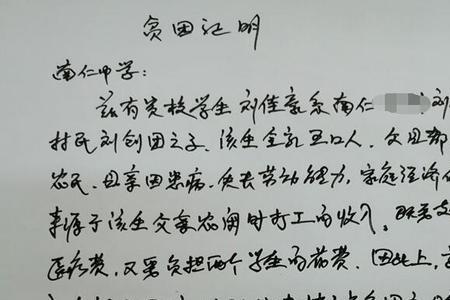 贫困证明
南仁中学：
兹有贵校学生刘佳豪系南仁 刘
村民刘创团之子、该生全家五口人、父母都
农民、母亲因患病、失去劳动能力，家庭经济
来源于该生父亲农闲时打工的收入。既需支
医疗费，又需负担两个学生的 费、因此上，